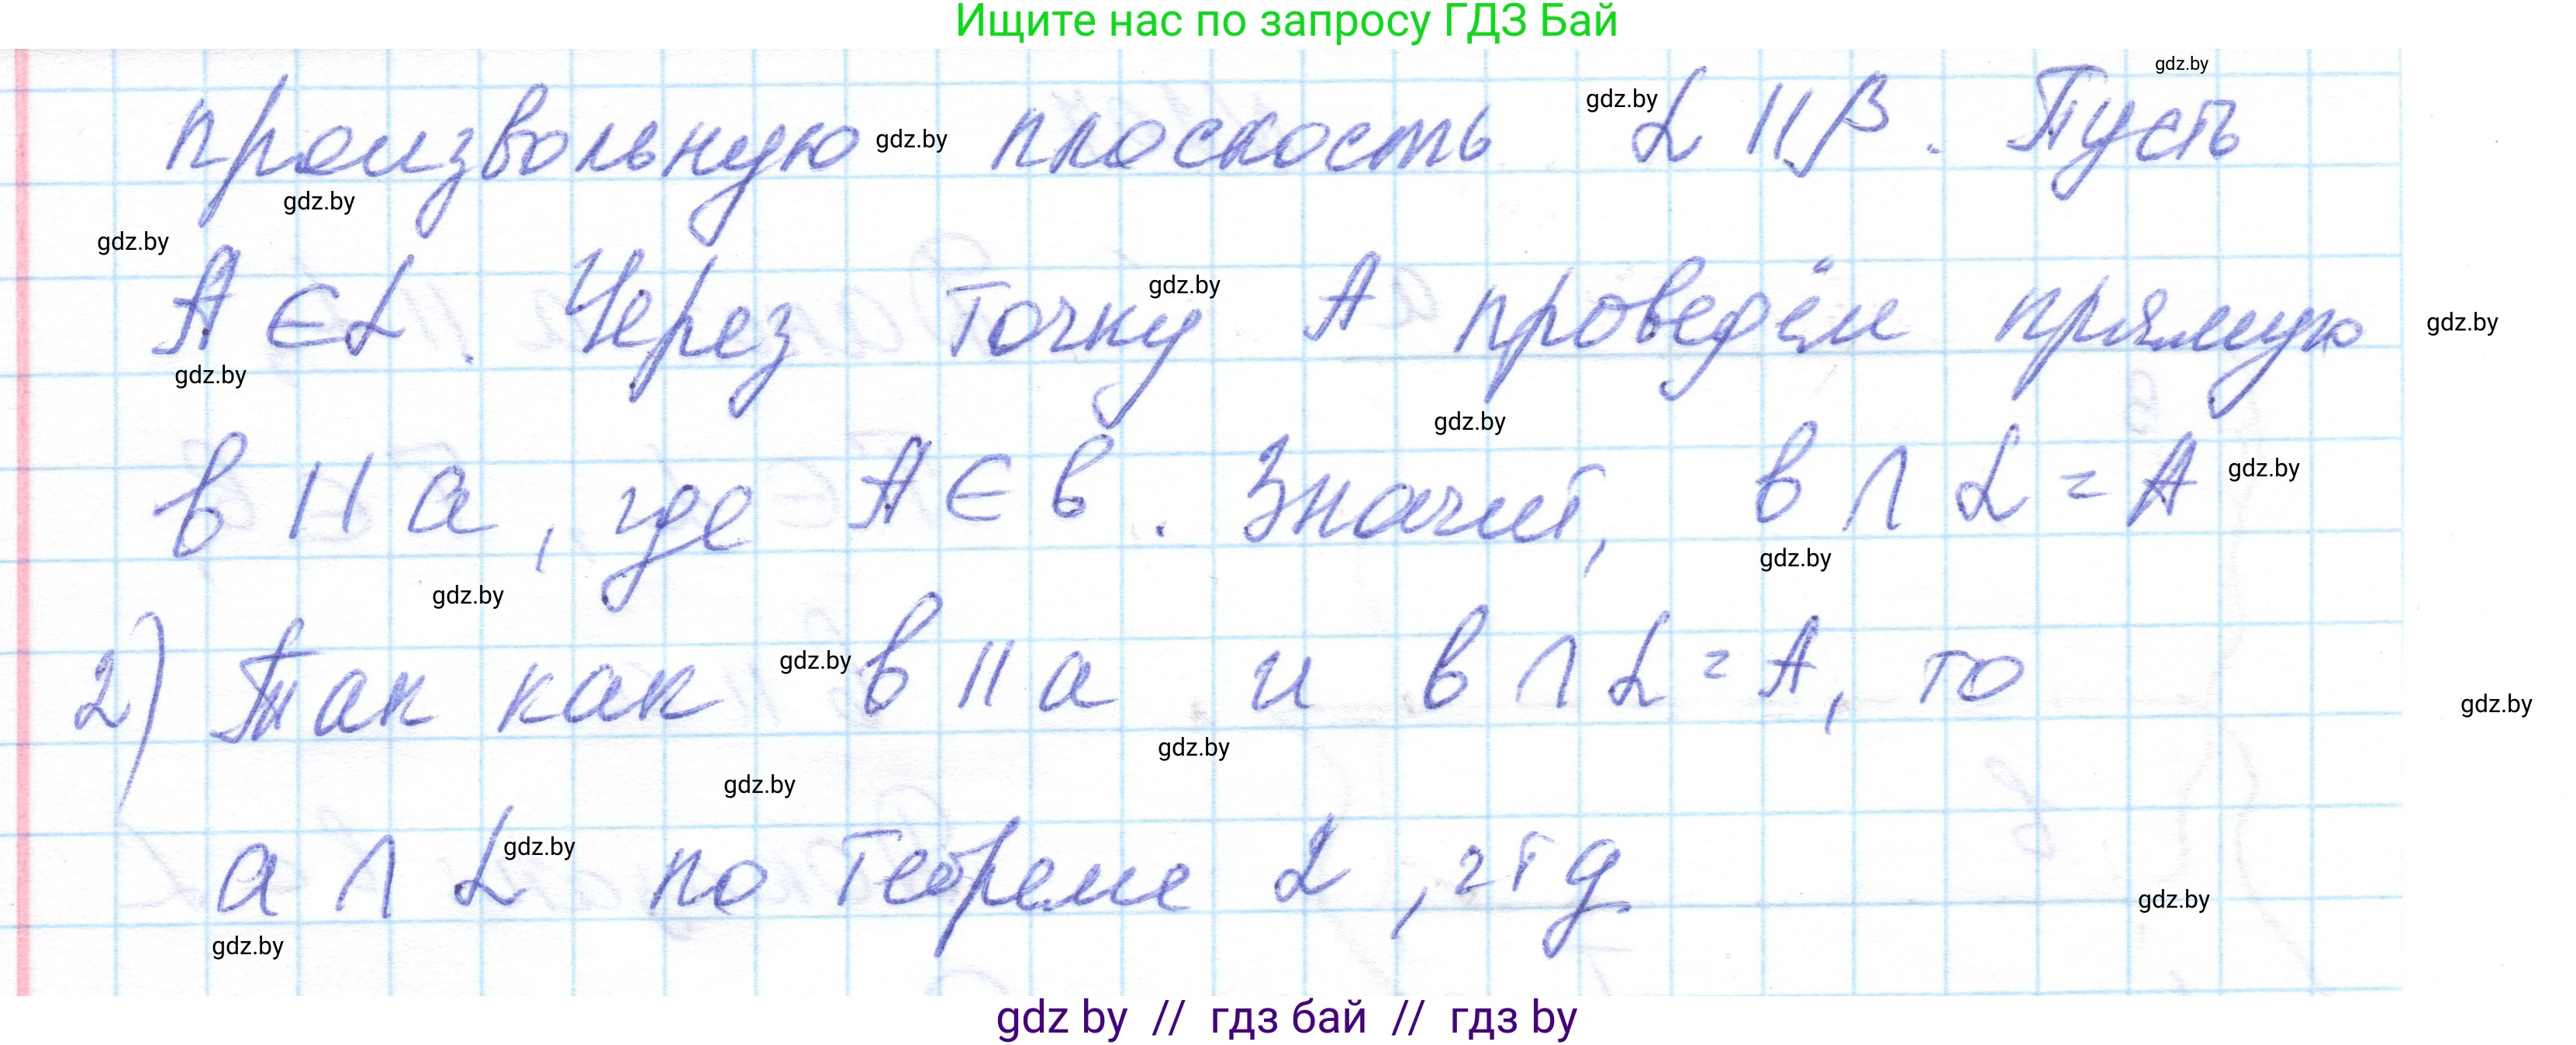 Ищите нас по запросу ГДЗ Бай
gdz.by
произвольную gdz.by плоскость gdz.by α || β. Пусть
gdz.by
gdz.by
A ∈ α. Через точку gdz.by A проведём прямую gdz.by
gdz.by
gdz.by
в || a, где A ∈ в. Значит, в ∩ α = A gdz.by
gdz.by
gdz.by
2) Так как gdz.by в || a и в ∩ α = A, то gdz.by
gdz.by
gdz.by
a ∩ α gdz.by по теореме 2, чтд gdz.by
gdz.by
gdz by // гдз бай // гдз by